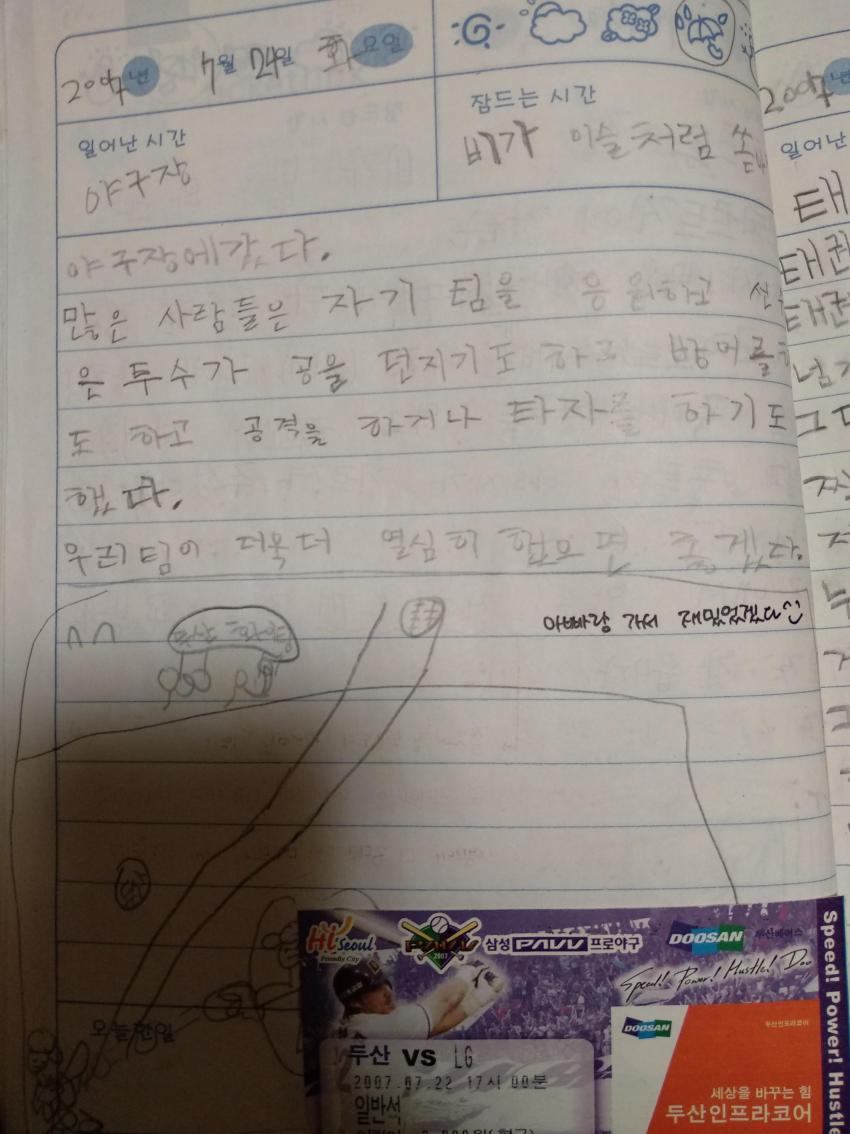 2007년 7월 24일 화요일
일어난 시간
야구장
잠드는 시간
비가 이슬처럼
야구장에갔다.
많은 사람들은 자기 팀을 응원하고 선
은 투수가 공을 던지기도 하고 방어를
도 하고 공격을 하거나 타자를 하기도
했다.
우리팀이 더욱더 열심히 했으면 좋겠다.
아빠랑 가서 재밌었겠다
두산 화이팅
오늘 한 일
Hi Seoul
Friendly City
PAVV
2007
삼성 PAVV 프로야구
DOOSAN 두산베어스
Speed! Power! Hustle! Doo
두산 VS LG
2007.07.22 17시 00분
일반석
DOOSAN 두산인프라코어
세상을 바꾸는 힘
두산인프라코어
Speed! Power! Hustle
2007년
일어난
태
태권
태권